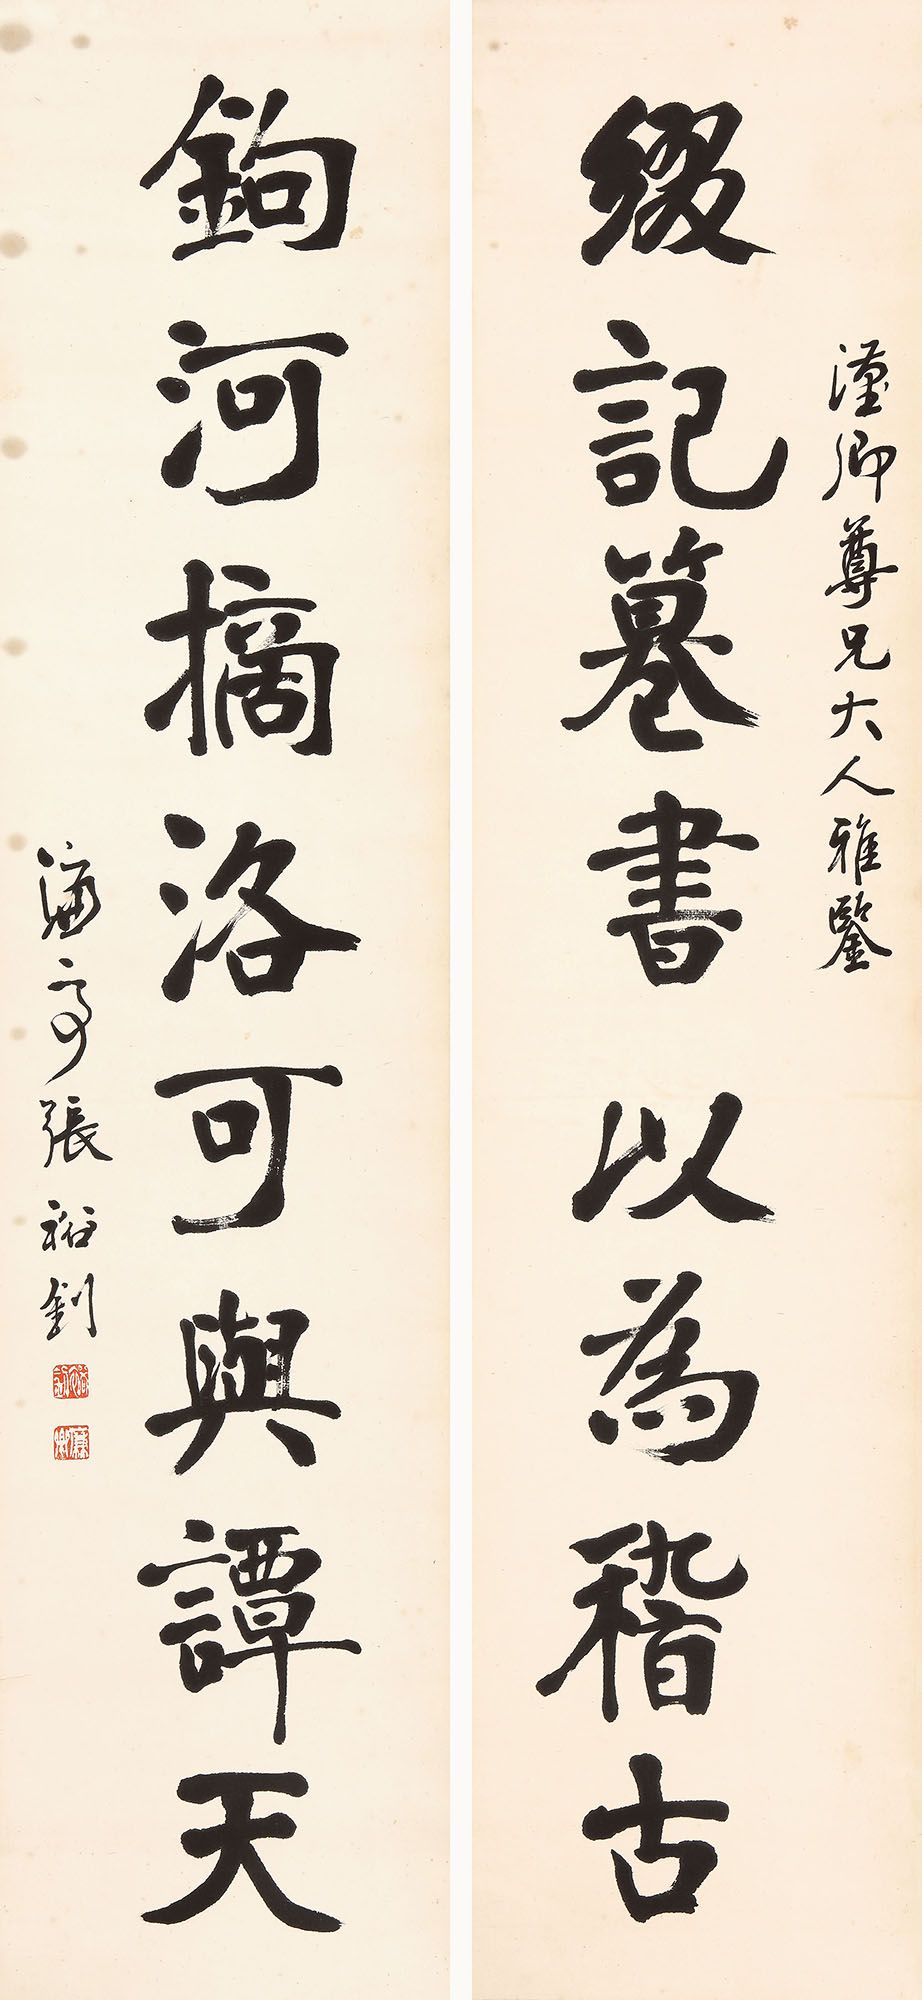 綴記篹書以為稽古
卿尊兄大人雅鑒
鉤河摘洛可與譚天
濂亭張裕釗
裕釗
廉卿